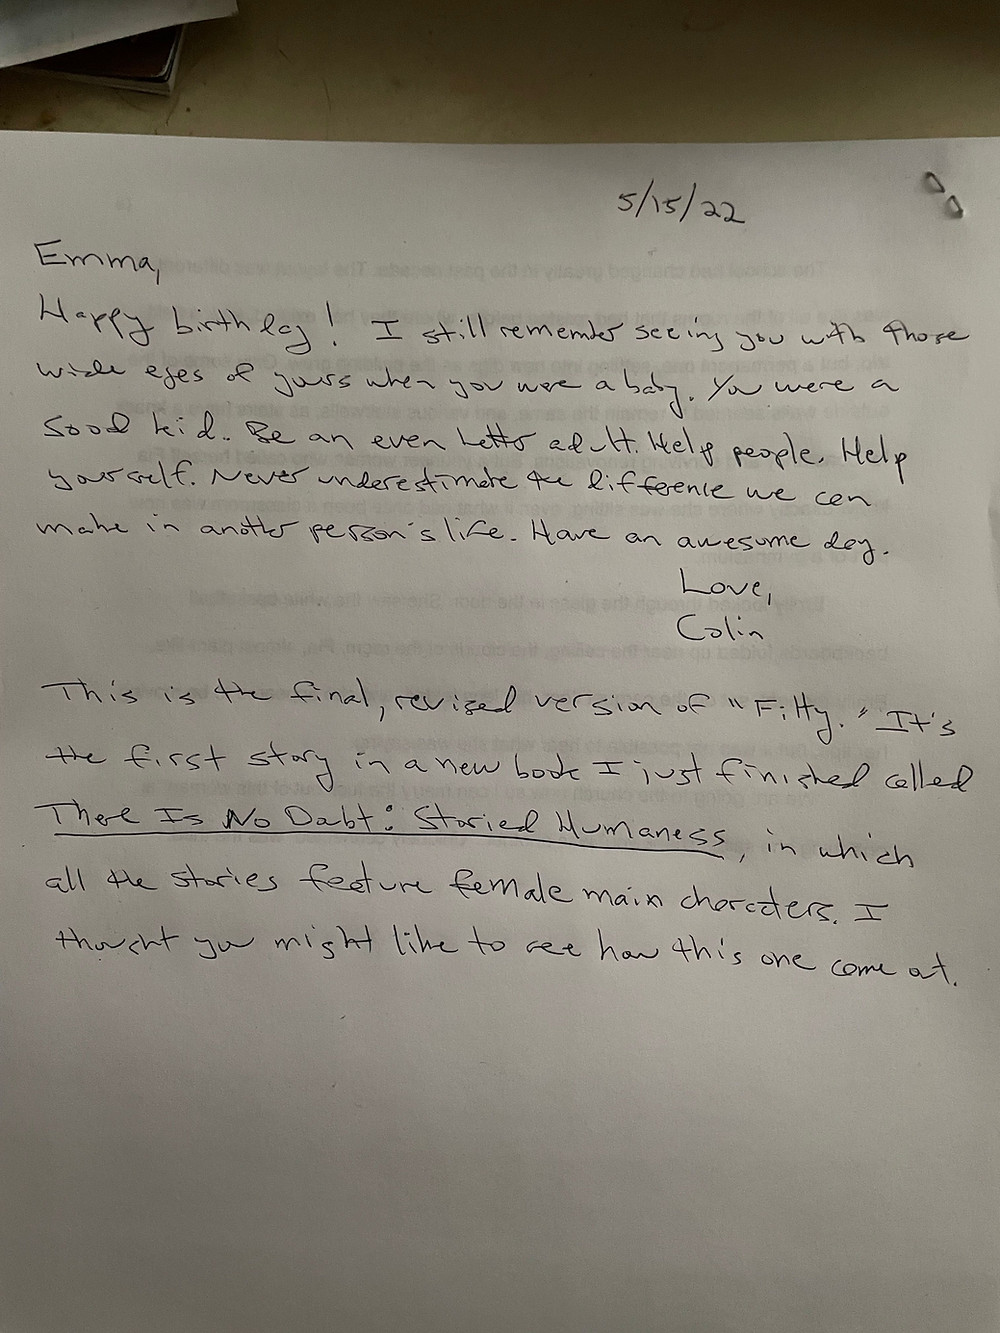 5/15/22
Emma,
Happy birthday! I still remember seeing you with those
wide eyes of yours when you were a baby. You were a
good kid. Be an even better adult. Help people. Help
yourself. Never underestimate the difference we can
make in another person's life. Have an awesome day.
Love,
Colin
This is the final, revised version of "Fitty." It's
the first story in a new book I just finished called
There Is No Doubt: Storied Humaness, in which
all the stories feature female main characters. I
thought you might like to see how this one came out.